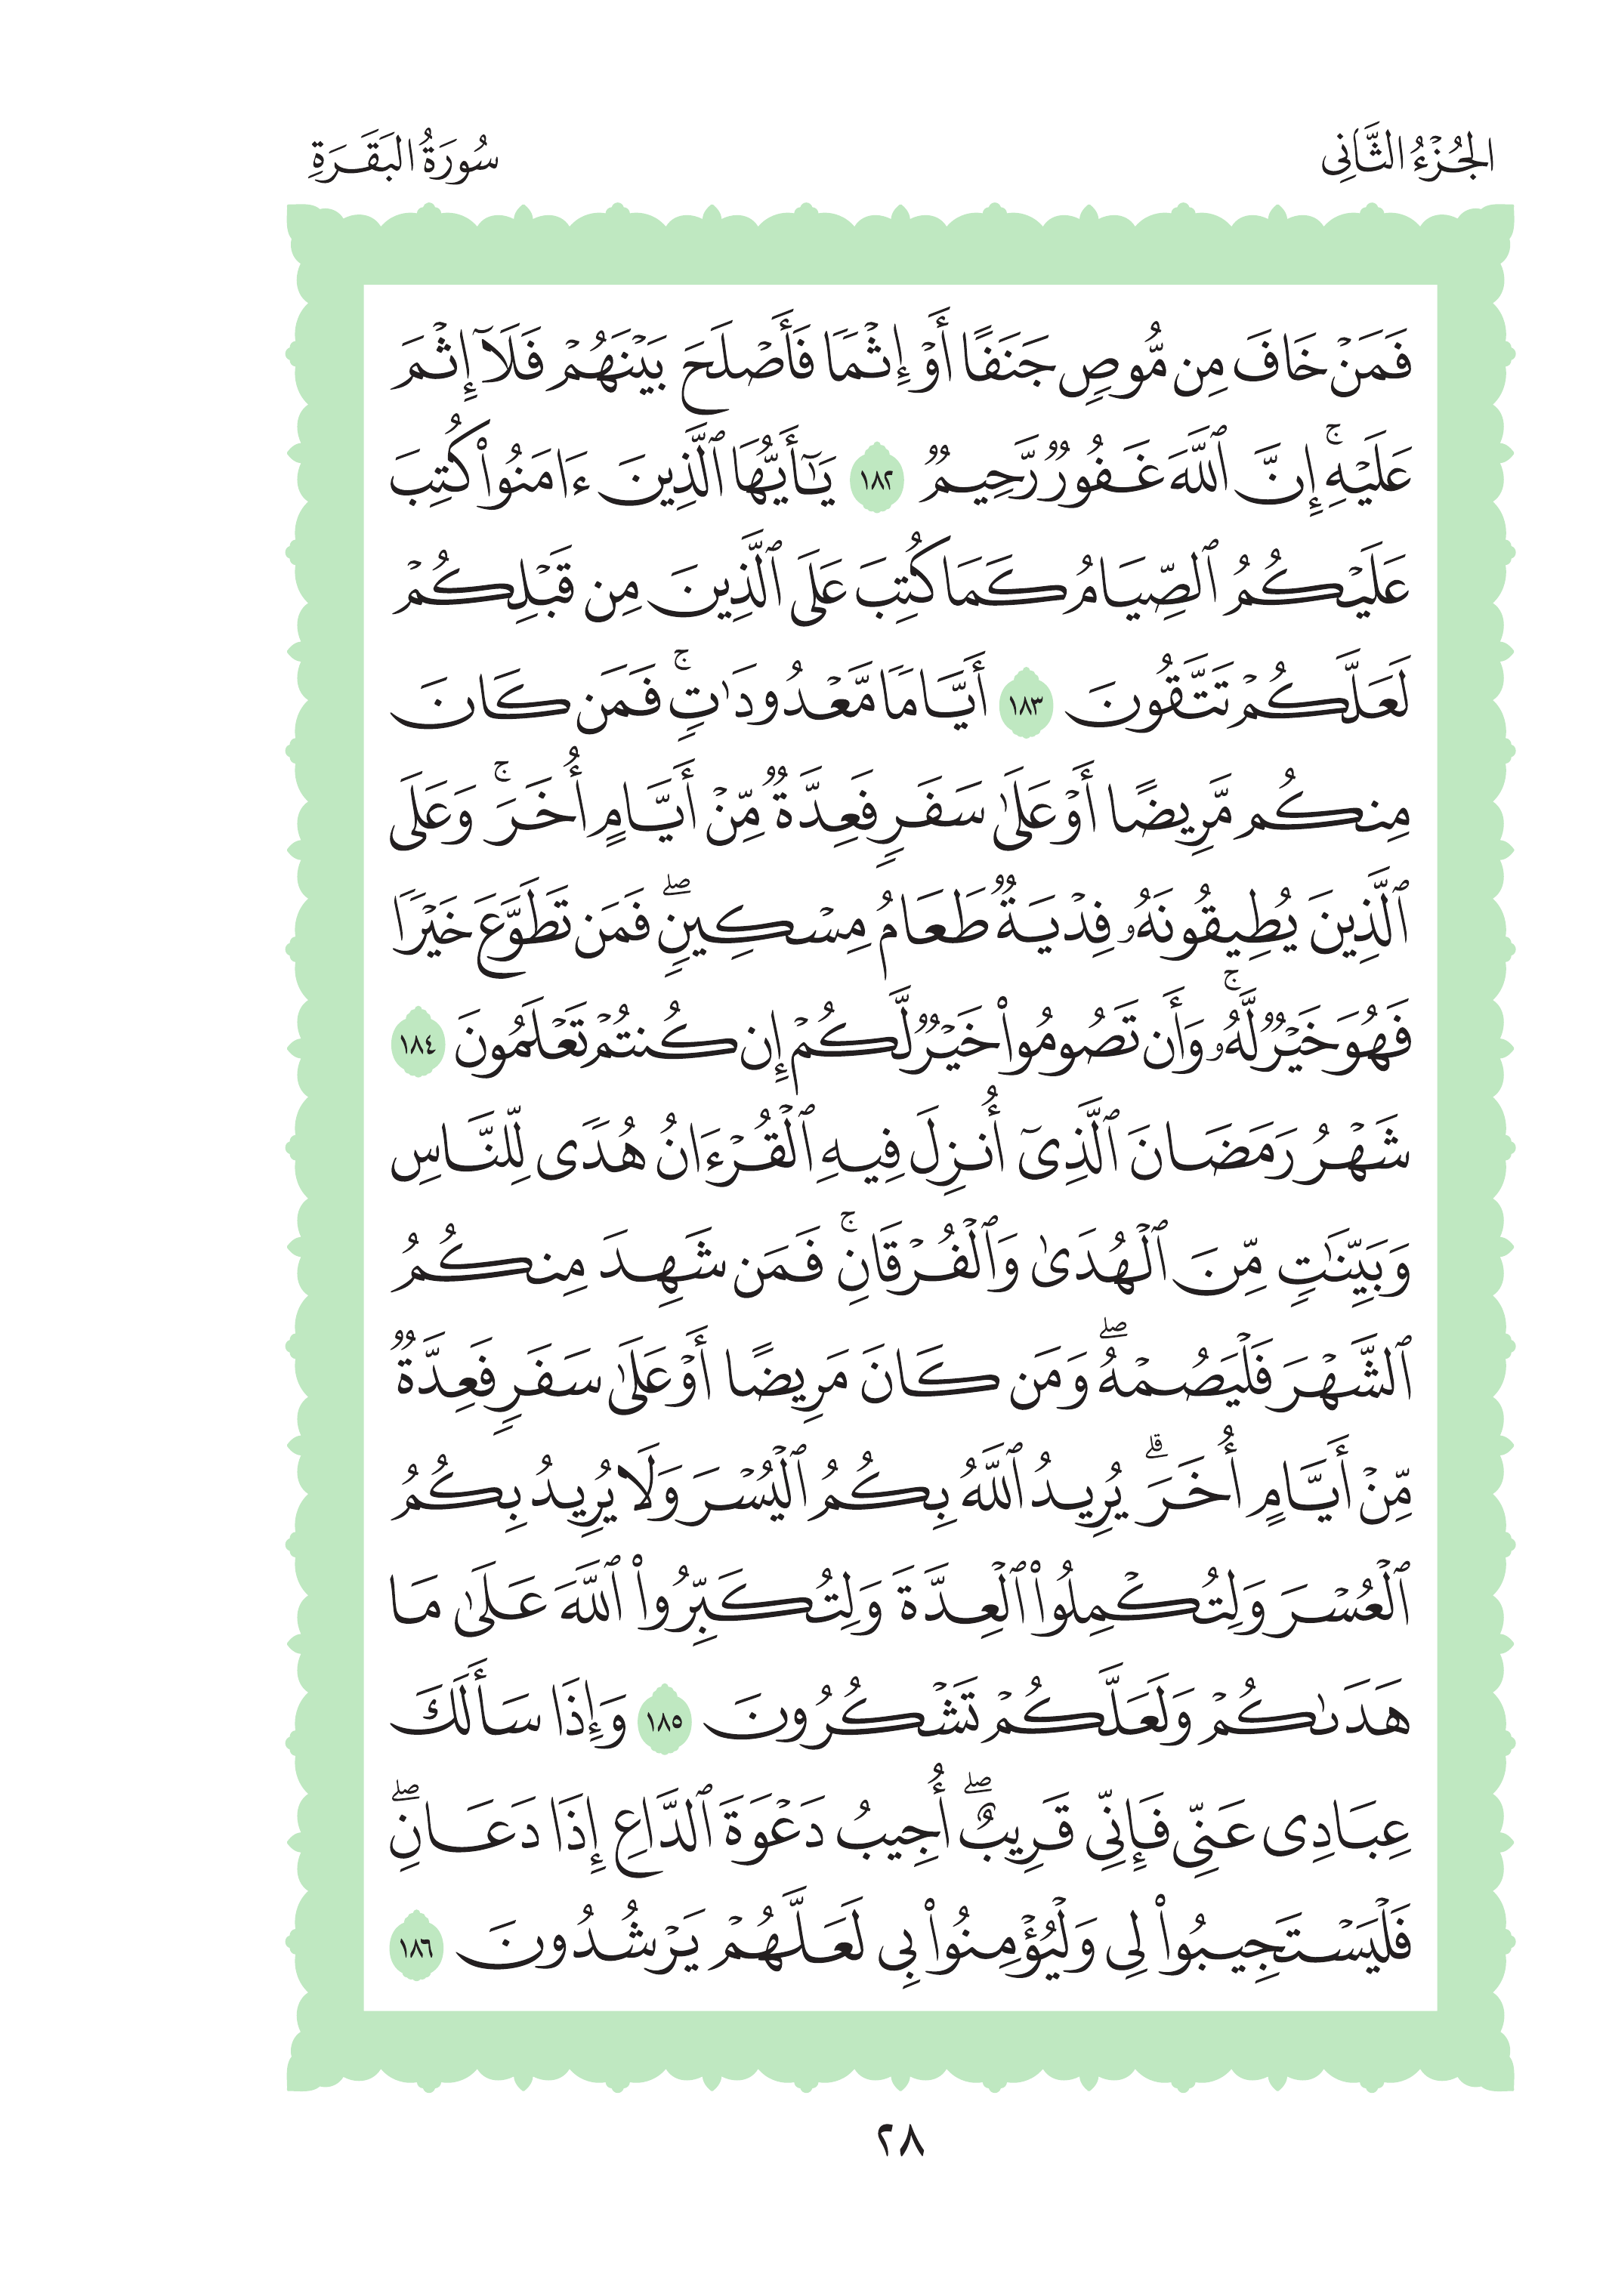 الجُزْءُ الثَّانِى
سُورَةُ البَقَرَةِ
فَمَنْ خَافَ مِن مُّوصٍ جَنَفًا أَوْ إِثْمًا فَأَصْلَحَ بَيْنَهُمْ فَلَآ إِثْمَ
عَلَيْهِۚ إِنَّ ٱللَّهَ غَفُورٌ رَّحِيمٌ ١٨٢ يَـٰٓأَيُّهَا ٱلَّذِينَ ءَامَنُوا۟ كُتِبَ
عَلَيْكُمُ ٱلصِّيَامُ كَمَا كُتِبَ عَلَى ٱلَّذِينَ مِن قَبْلِكُمْ
لَعَلَّكُمْ تَتَّقُونَ ١٨٣ أَيَّامًا مَّعْدُودَٰتٍۚ فَمَن كَانَ
مِنكُم مَّرِيضًا أَوْ عَلَىٰ سَفَرٍ فَعِدَّةٌ مِّنْ أَيَّامٍ أُخَرَۚ وَعَلَى
ٱلَّذِينَ يُطِيقُونَهُۥ فِدْيَةٌ طَعَامُ مِسْكِينٍۖ فَمَن تَطَوَّعَ خَيْرًا
فَهُوَ خَيْرٌ لَّهُۥۚ وَأَن تَصُومُوا۟ خَيْرٌ لَّكُمْ إِن كُنتُمْ تَعْلَمُونَ ١٨٤
شَهْرُ رَمَضَانَ ٱلَّذِىٓ أُنزِلَ فِيهِ ٱلْقُرْءَانُ هُدًى لِّلنَّاسِ
وَبَيِّنَـٰتٍ مِّنَ ٱلْهُدَىٰ وَٱلْفُرْقَانِۚ فَمَن شَهِدَ مِنكُمُ
ٱلشَّهْرَ فَلْيَصُمْهُۖ وَمَن كَانَ مَرِيضًا أَوْ عَلَىٰ سَفَرٍ فَعِدَّةٌ
مِّنْ أَيَّامٍ أُخَرَۗ يُرِيدُ ٱللَّهُ بِكُمُ ٱلْيُسْرَ وَلَا يُرِيدُ بِكُمُ
ٱلْعُسْرَ وَلِتُكْمِلُوا۟ ٱلْعِدَّةَ وَلِتُكَبِّرُوا۟ ٱللَّهَ عَلَىٰ مَا
هَدَىٰكُمْ وَلَعَلَّكُمْ تَشْكُرُونَ ١٨٥ وَإِذَا سَأَلَكَ
عِبَادِى عَنِّى فَإِنِّى قَرِيبٌۖ أُجِيبُ دَعْوَةَ ٱلدَّاعِ إِذَا دَعَانِۖ
فَلْيَسْتَجِيبُوا۟ لِى وَلْيُؤْمِنُوا۟ بِى لَعَلَّهُمْ يَرْشُدُونَ ١٨٦
٢٨